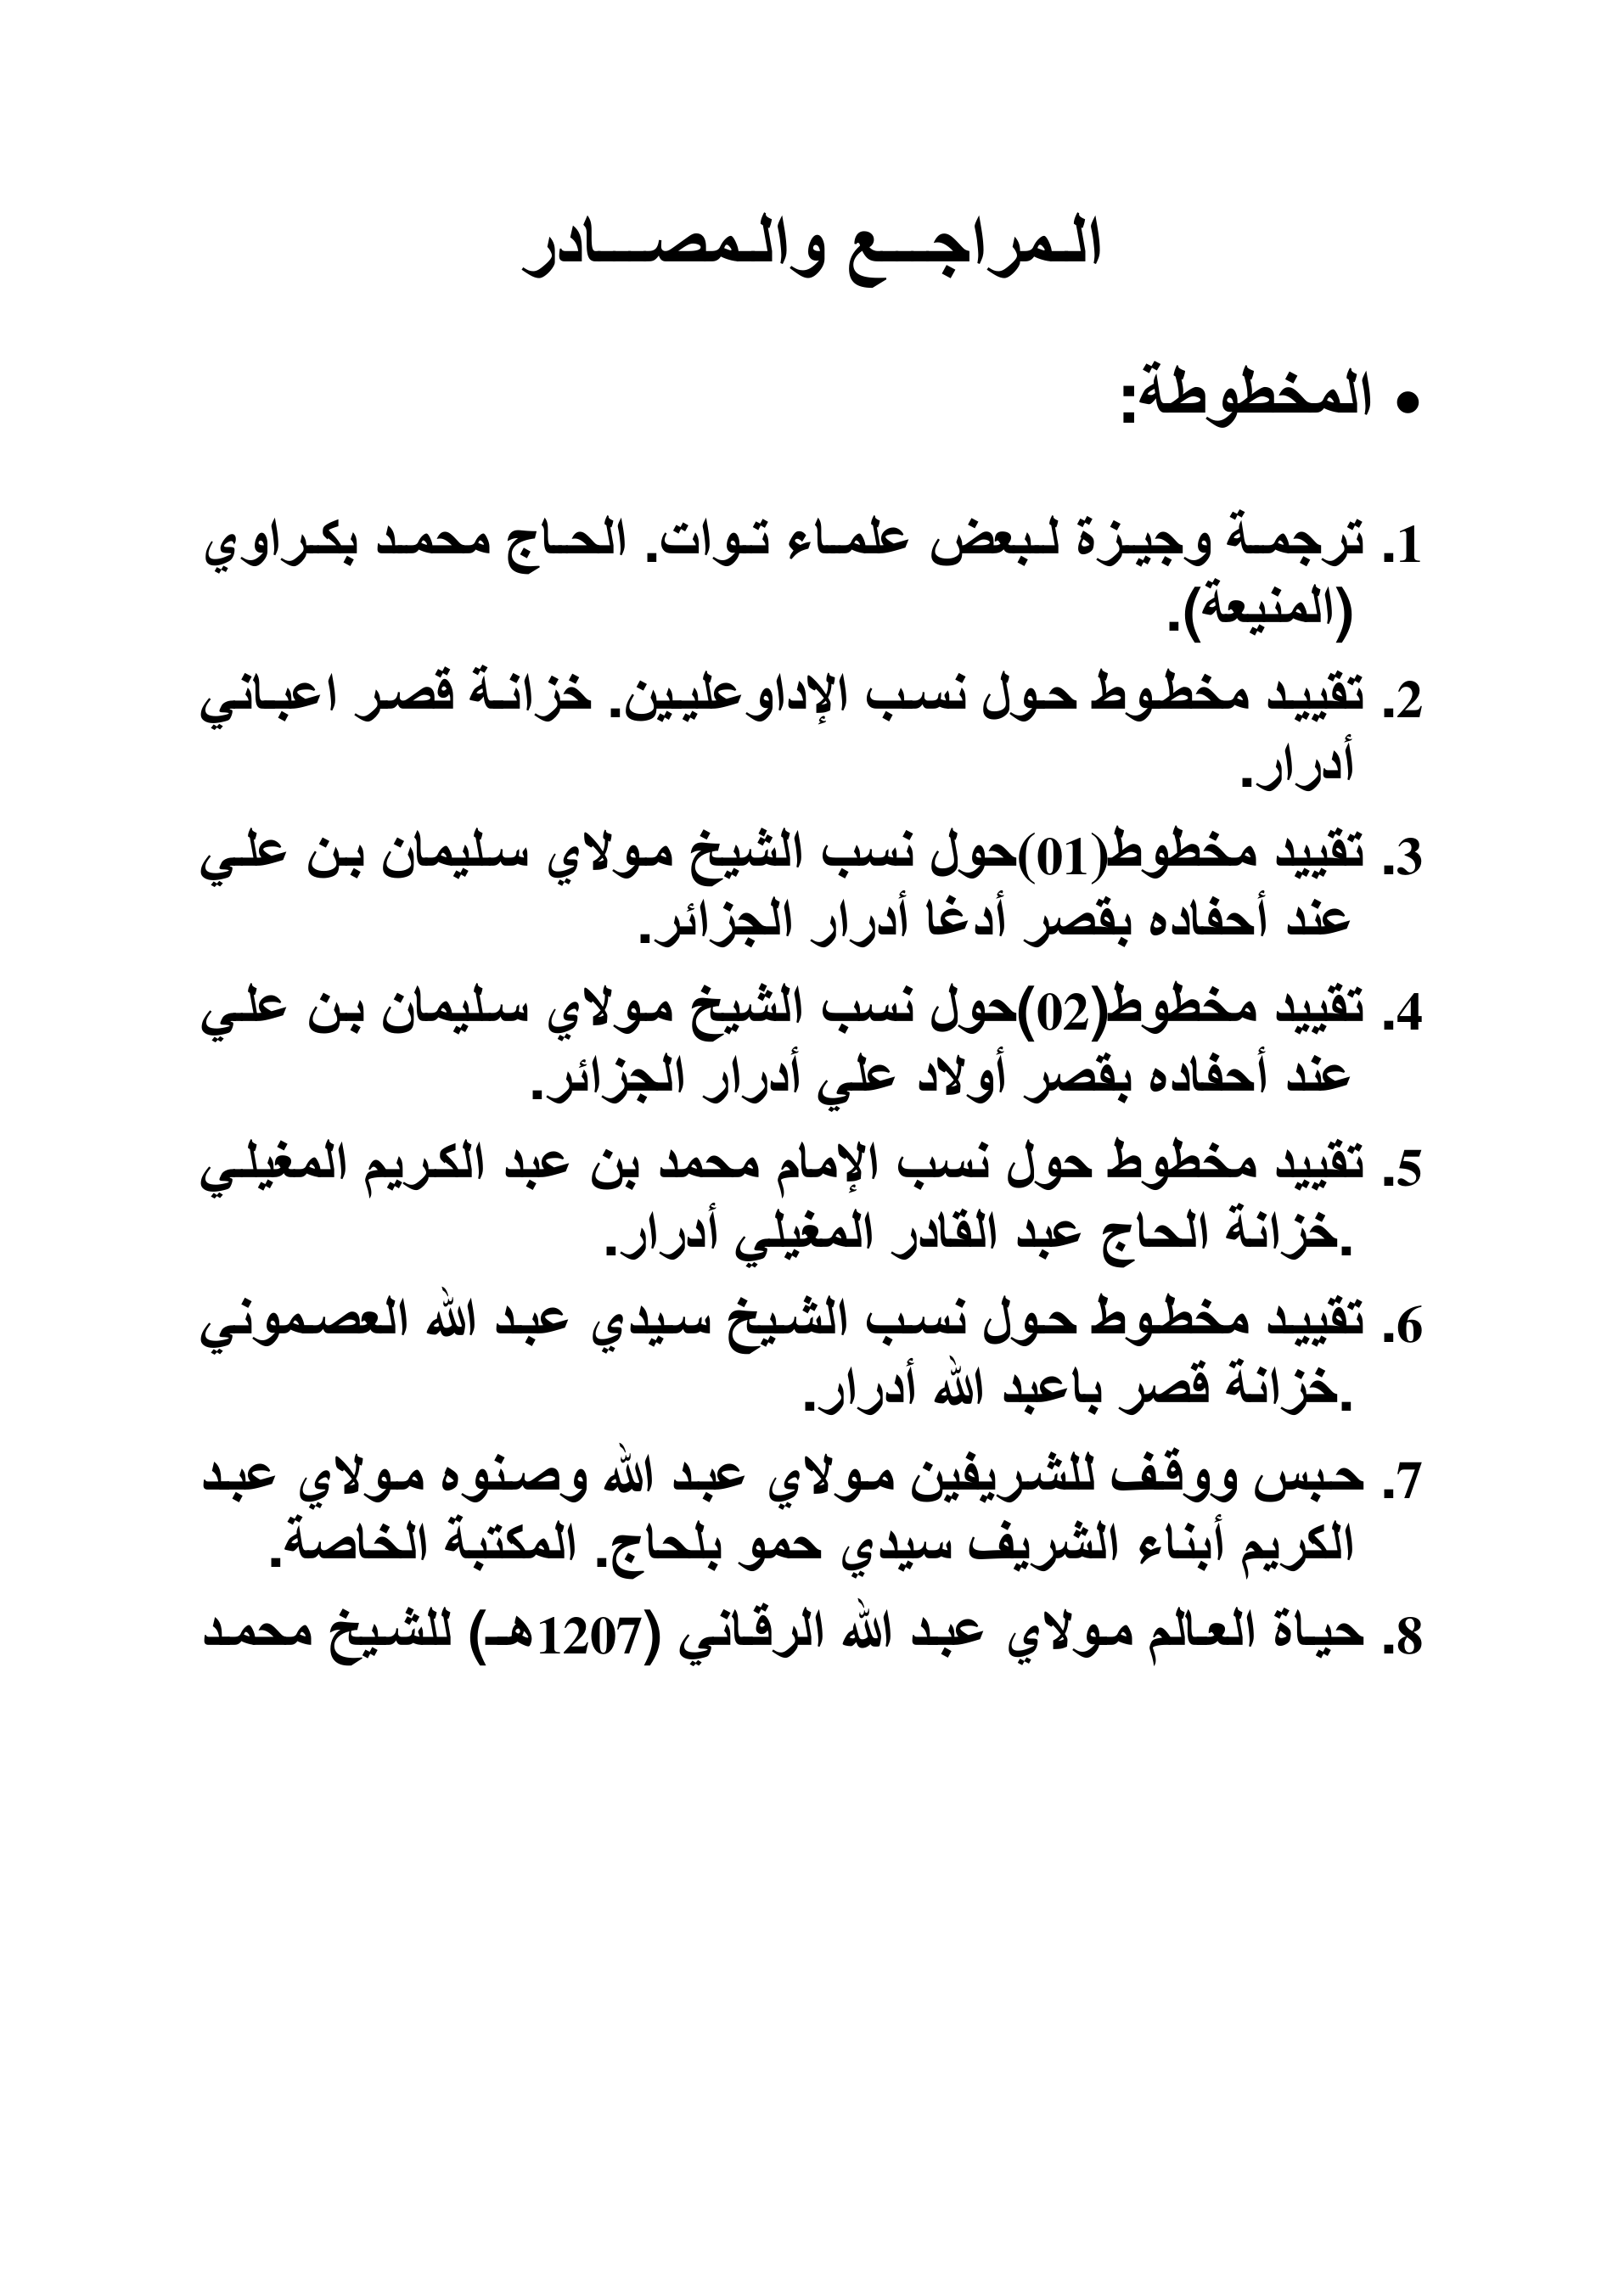 المراجع والمصادر
• المخطوطة:
1. ترجمة وجيزة لبعض علماء توات. الحاج محمد بكراوي
(المنيعة).
2. تقييد مخطوط حول نسب الإداوعليين. خزانة قصر اعباني
أدرار.
3. تقييد مخطوط(01)حول نسب الشيخ مولاي سليمان بن علي
عند أحفاده بقصر أدغا أدرار الجزائر.
4. تقييد مخطوط(02)حول نسب الشيخ مولاي سليمان بن علي
عند أحفاده بقصر أولاد علي أدرار الجزائر.
5. تقييد مخطوط حول نسب الإمام محمد بن عبد الكريم المغيلي
.خزانة الحاج عبد القادر المغيلي أدرار.
6. تقييد مخطوط حول نسب الشيخ سيدي عبد الله العصموني
.خزانة قصر باعبد الله أدرار.
7. حبس ووقف للشريفين مولاي عبد الله وصنوه مولاي عبد
الكريم أبناء الشريف سيدي حمو بلحاج. المكتبة الخاصة.
8. حياة العالم مولاي عبد الله الرقاني (1207هـ) للشيخ محمد